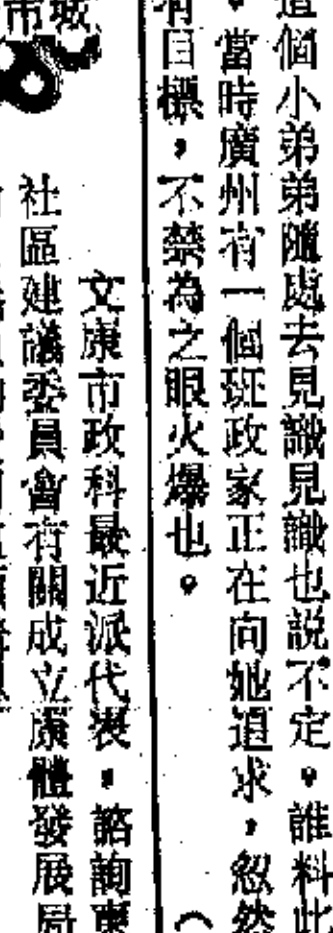 這個小弟弟隨處去見識見識也說不定。誰料此
。當時廣州有一個班政家正在向她追求,忽然
有目標,不禁為之眼火爆也。(
文康市政科最近派代表,諮詢東
社區建議委員會有關成立康體發展局
市城